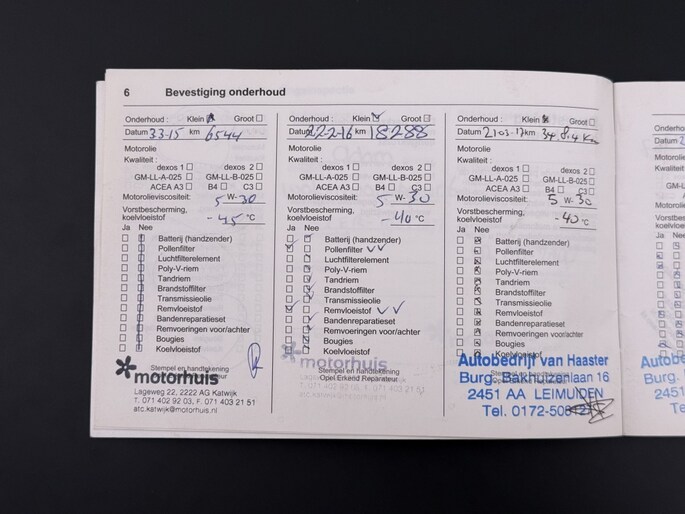 6 Bevestiging onderhoud
Onderhoud : Klein Groot
Datum 33-15 km 6544
Motorolie
Kwaliteit :
dexos 1 dexos 2
GM-LL-A-025 GM-LL-B-025
ACEA A3 B4 C3
Motorolieviscositeit: 5 W-30
Vorstbescherming,
koelvloeistof -45 °C
Ja Nee
Batterij (handzender)
Pollenfilter
Luchtfilterelement
Poly-V-riem
Tandriem
Brandstoffilter
Transmissieolie
Remvloeistof
Bandenreparatieset
Remvoeringen voor/achter
Bougies
Koelvloeistof
Stempel en handtekening
motorhuis
Lageweg 22, 2222 AG Katwijk
T. 071 402 92 03, F. 071 403 21 51
atc.katwijk@motorhuis.nl
Onderhoud : Klein Groot
Datum 22-2-16 km 18288
Motorolie
Kwaliteit :
dexos 1 dexos 2
GM-LL-A-025 GM-LL-B-025
ACEA A3 B4 C3
Motorolieviscositeit: 5 W-30
Vorstbescherming,
koelvloeistof -40 °C
Ja Nee
Batterij (handzender)
Pollenfilter
Luchtfilterelement
Poly-V-riem
Tandriem
Brandstoffilter
Transmissieolie
Remvloeistof
Bandenreparatieset
Remvoeringen voor/achter
Bougies
Koelvloeistof
motorhuis
Stempel en handtekening
Opel Erkend Reparateur
Lageweg 22, 2222 AG Katwijk
T. 071 402 92 03, F. 071 403 21 51
atc.katwijk@motorhuis.nl
Onderhoud : Klein Groot
Datum km
Motorolie
Kwaliteit :
dexos 1 dexos 2
GM-LL-A-025 GM-LL-B-025
ACEA A3 B4 C3
Motorolieviscositeit: 5 W-30
Vorstbescherming,
koelvloeistof -40 °C
Ja Nee
Batterij (handzender)
Pollenfilter
Luchtfilterelement
Poly-V-riem
Tandriem
Brandstoffilter
Transmissieolie
Remvloeistof
Bandenreparatieset
Remvoeringen voor/achter
Bougies
Koelvloeistof
Autobedrijf van Haaster
Burg. Bakhuizenlaan 16
2451 AA LEIMUIDEN
Tel. 0172-508
Datum
Motorolie
Ja Nee
Burg.
Tel.